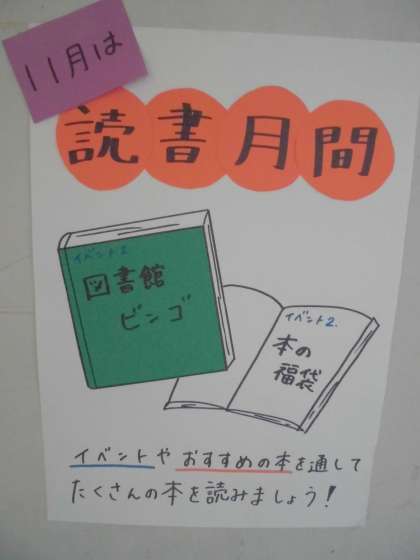 11月は
読書月間
イベント1.
図書館
ビンゴ
イベント2.
本の
福袋
イベントやおすすめの本を通して
たくさんの本を読みましょう!